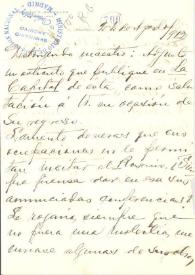 de Agosto
1912
Distinguido maestro: Adjunto
un extracto que publiqué en La
Capital de esta, como salu-
tación a V. en ocasión de
su regreso.
Lamento de veras que sus
ocupaciones no le permi-
tan visitar el Rosario.
que piensa dar en esa sus
anunciadas conferencias?
Le rogaría, siempre que
no fuera una molestia, me
enviase algunas de sus